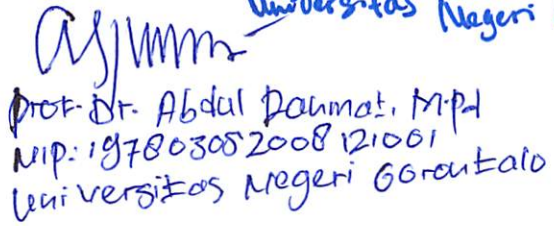 Universitas Negeri
Prof. Dr. Abdul Rahmat, M.Pd
NIP: 197803052008121001
Universitas Negeri Gorontalo